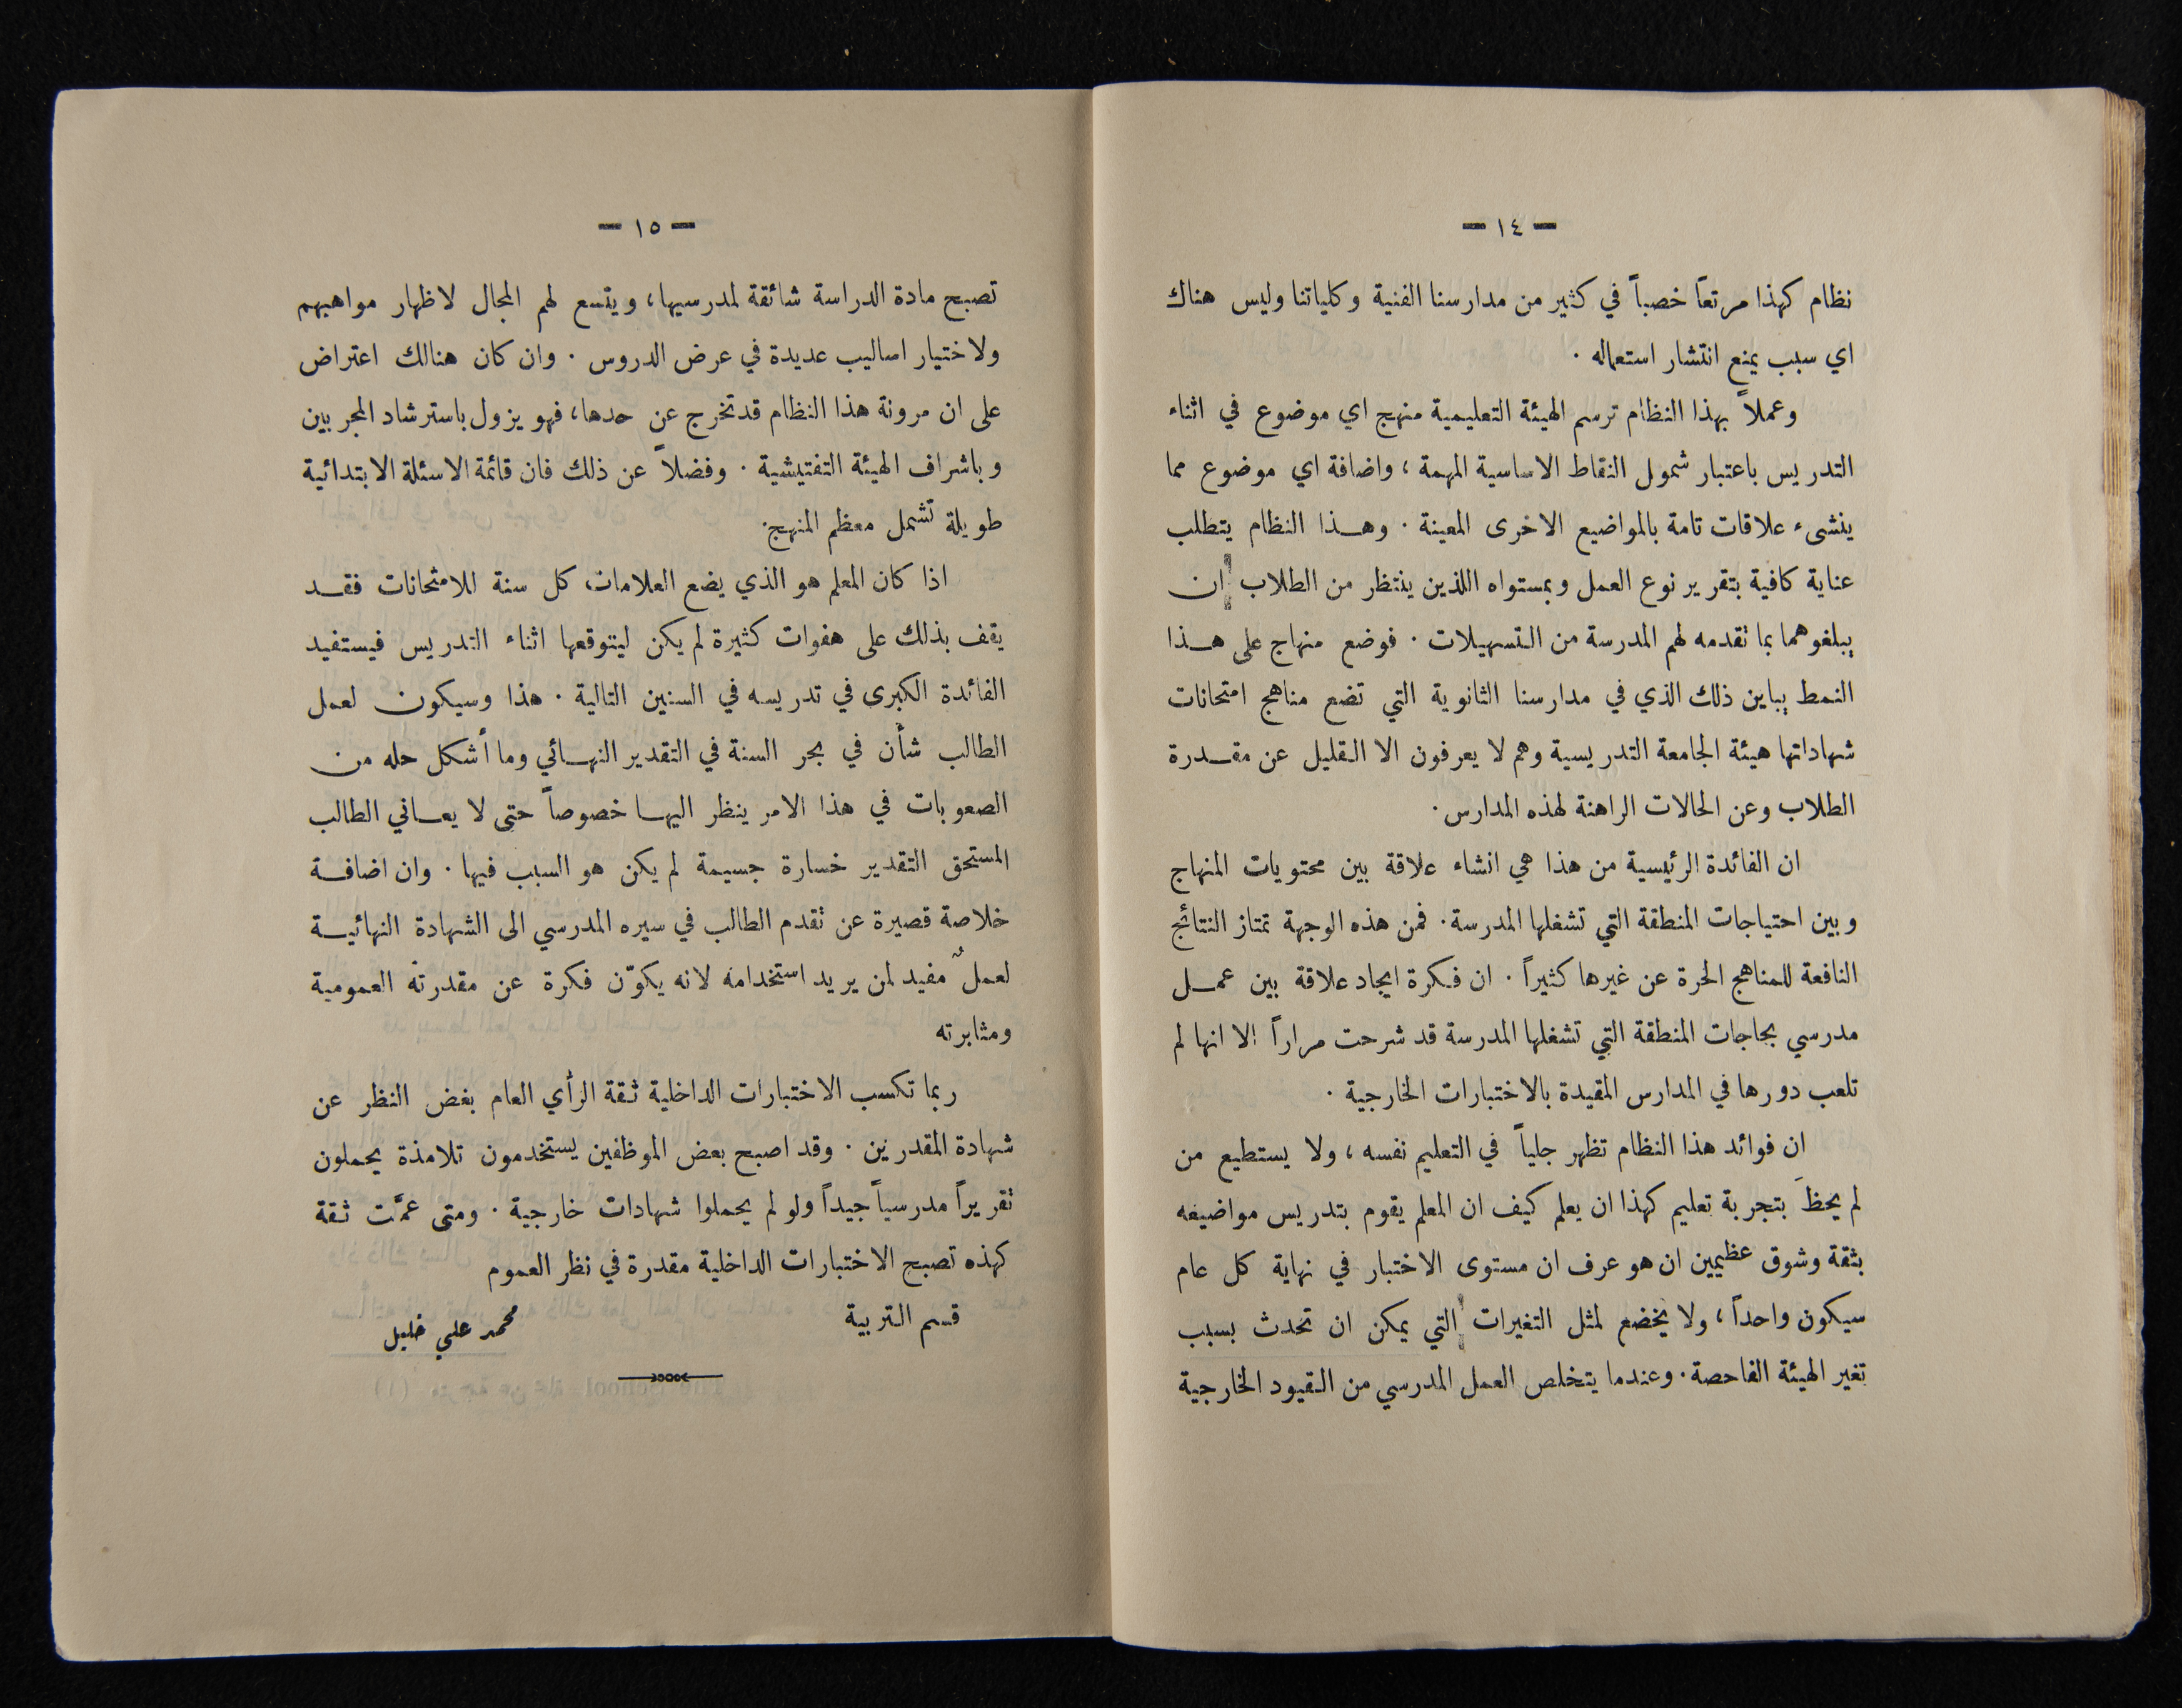 — ١٤ —
نظام كهذا مرتعاً خصباً في كثير من مدارسنا الفنية وكلياتنا وليس هناك
اي سبب يمنع انتشار استعماله .
وعملاً بهذا النظام ترسم الهيئة التعليمية منهج اي موضوع في اثناء
التدريس باعتبار شمول النقاط الاساسية المهمة ، واضافة اي موضوع مما
ينشىء علاقات تامة بالمواضيع الاخرى المعينة . وهـذا النظام يتطلب
عناية كافية بتقرير نوع العمل وبمستواه اللذين ينتظر من الطلاب ان
يبلغوهما بما تقدمه لهم المدرسة من التسهيلات . فوضع منهاج على هـذا
النمط يباين ذلك الذي في مدارسنا الثانوية التي تضع مناهج امتحانات
شهاداتها هيئة الجامعة التدريسية وهم لا يعرفون الا القليل عن مقـدرة
الطلاب وعن الحالات الراهنة لهذه المدارس .
ان الفائدة الرئيسية من هذا هي انشاء علاقة بين محتويات المنهاج
وبين احتياجات المنطقة التي تشغلها المدرسة . فمن هذه الوجهة تمتاز النتائج
النافعة للمناهج الحرة عن غيرها كثيراً . ان فكرة ايجاد علاقة بين عمـل
مدرسي بحاجات المنطقة التي تشغلها المدرسة قد شرحت مراراً الا انها لم
تلعب دورها في المدارس المقيدة بالاختبارات الخارجية .
ان فوائد هذا النظام تظهر جلياً في التعليم نفسه ، ولا يستطيع من
لم يحظَ بتجربة تعليم كهذا ان يعلم كيف ان المعلم يقوم بتدريس مواضيعه
بثقة وشوق عظيمين ان هو عرف ان مستوى الاختبار في نهاية كل عام
سيكون واحداً ، ولا يخضع لمثل التغيرات التي يمكن ان تحدث بسبب
تغير الهيئة الفاحصة . وعندما يتخلص العمل المدرسي من القيود الخارجية
— ١٥ —
تصبح مادة الدراسة شائقة لمدرسيها ، ويتسع لهم المجال لاظهار مواهبهم
ولاختيار اساليب عديدة في عرض الدروس . وان كان هنالك اعتراض
على ان مرونة هذا النظام قد تخرج عن حدها ، فهو يزول باسترشاد المجربين
وباشراف الهيئة التفتيشية . وفضلاً عن ذلك فان قائمة الاسئلة الابتدائية
طويلة تشمل معظم المنهج .
اذا كان المعلم هو الذي يضع العلامات كل سنة للامتحانات فقـد
يقف بذلك على هفوات كثيرة لم يكن ليتوقعها اثناء التدريس فيستفيد
الفائدة الكبرى في تدريسه في السنين التالية . هذا وسيكون لعمل
الطالب شأن في بحر السنة في التقدير النهـائي وما أشكل حله من
الصعوبات في هذا الامر ينظر اليهـا خصوصاً حتى لا يعـاني الطالب
المستحق التقدير خسارة جسيمة لم يكن هو السبب فيها . وان اضافـة
خلاصة قصيرة عن تقدم الطالب في سيره المدرسي الى الشهادة النهائيـة
لعملٌ مفيد لمن يريد استخدامه لانه يكوّن فكرة عن مقدرته العمومية
ومثابرته
ربما تكسب الاختبارات الداخلية ثقة الرأي العام بغض النظر عن
شهادة المقدرين . وقد اصبح بعض الموظفين يستخدمون تلامذة يحملون
تقريراً مدرسياً جيداً ولو لم يحملوا شهادات خارجية . ومتى عمَّت ثقة
كهذه تصبح الاختبارات الداخلية مقدرة في نظر العموم
قسم التربية محمد علي خليل